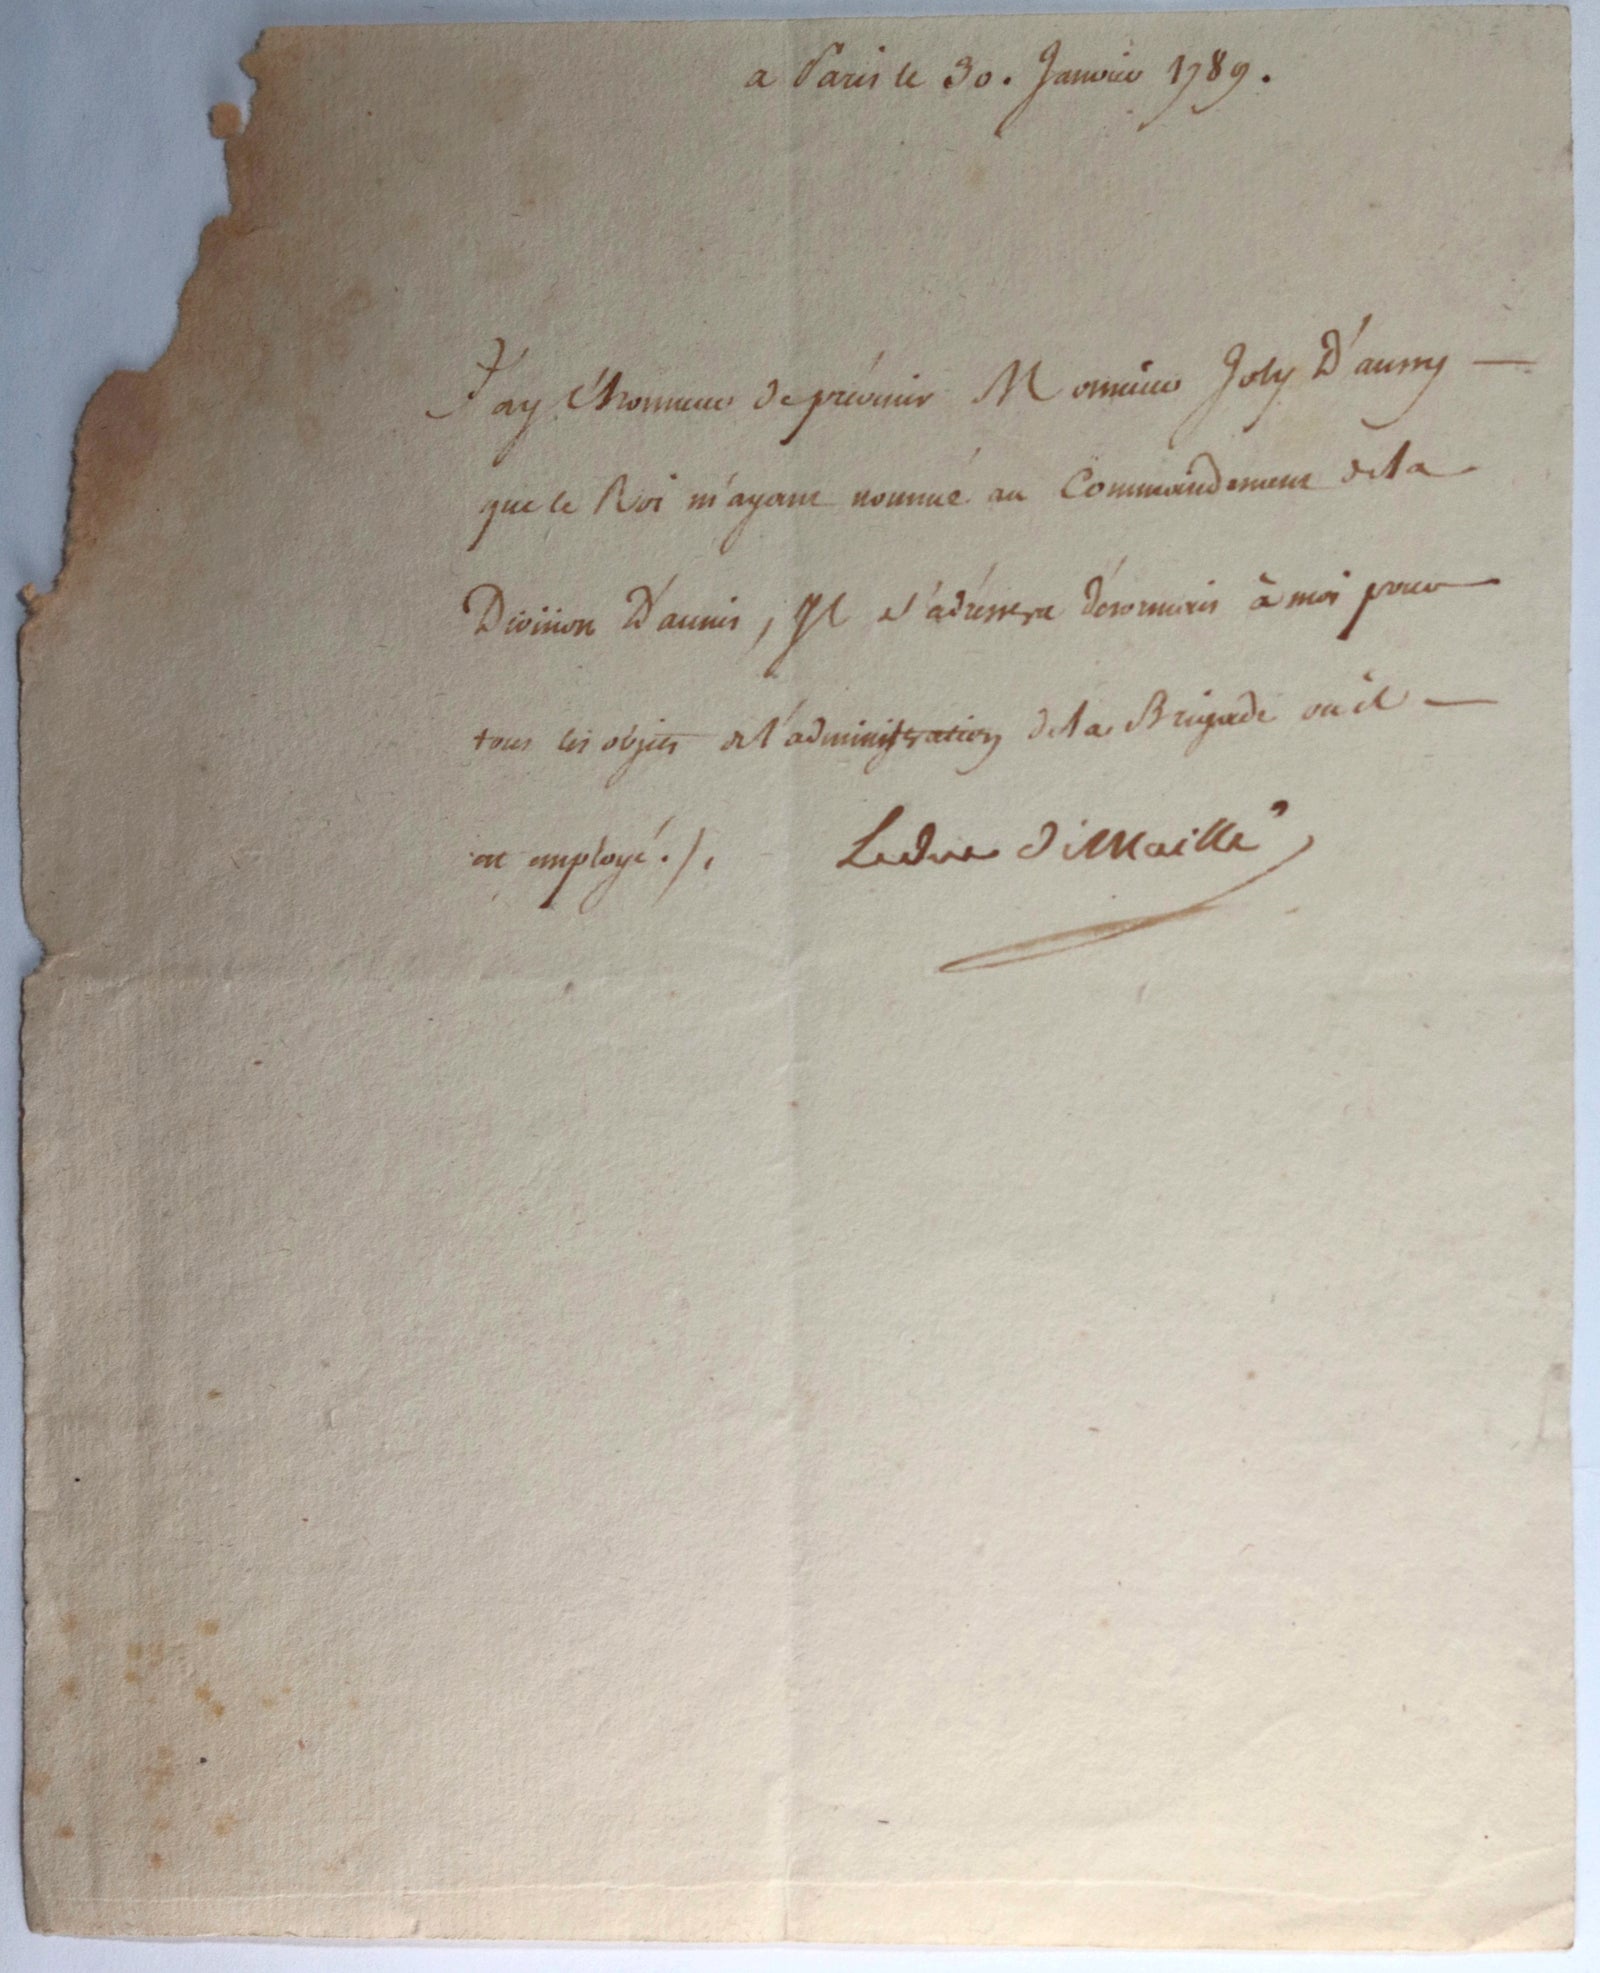 a Paris le 30. Janvier 1789.
J'ay l'honneur de prévenir Monsieur Joly D'aussy
que le Roi m'ayant nommé au Commandement de la
Division D'aunis, Il s'adressera désormais à moi pour
tous les objets de l'administration de la Brigade où il
est employé./.
Le duc de Maillé